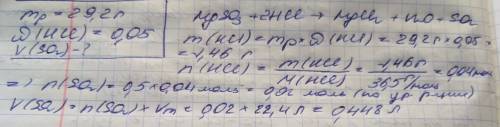 mр = 29,2 г
Д (HCl) = 0,05
V (SO₂) - ?
MgSO₃ + 2HCl → MgCl₂ + H₂O + SO₂
m(HCl) = mр × Д (HCl) = 29,2 г × 0,05 =
= 1,46 г
n(HCl) = m(HCl) / M(HCl) = 1,46 г / 36,5 г/моль = 0,04 моль
=> n(SO₂) = 0,5 × 0,04 моль = 0,02 моль (по ур. р-ции)
V(SO₂) = n(SO₂) × Vm = 0,02 × 22,4 л = 0,448 л